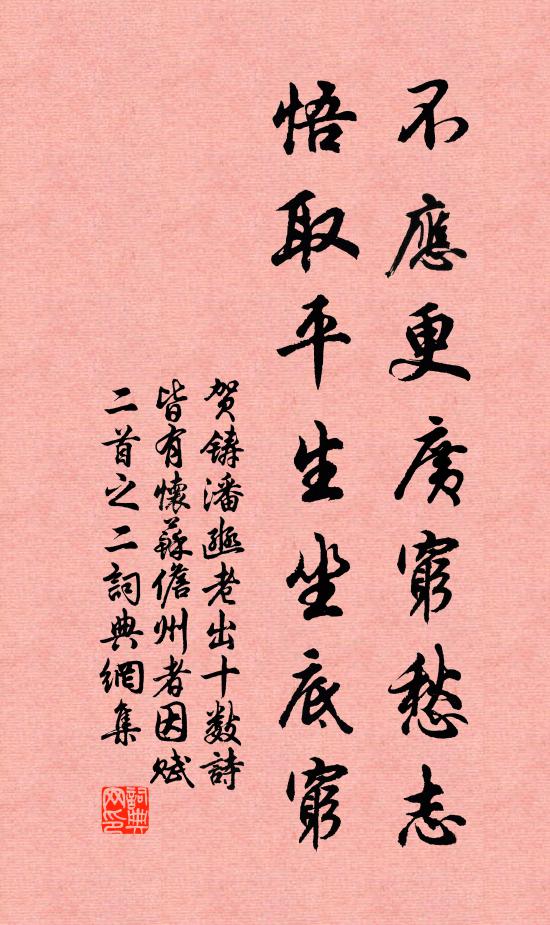 不應更廣窮愁志
悟取平生坐底窮
賀鑄潘邠老出十數詩
皆有懷蘇儋州者因賦
二首之二詞典網集
詞典網印